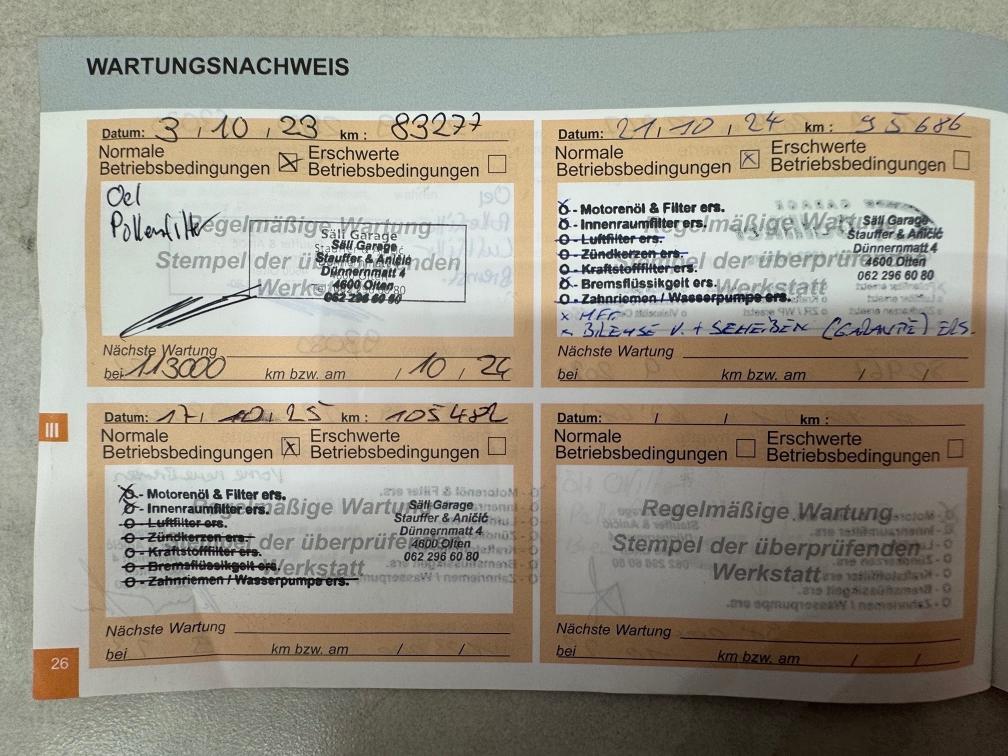 WARTUNGSNACHWEIS
Datum: 3, 10, 23 km: 83277
Normale Betriebsbedingungen Erschwerte Betriebsbedingungen
Oel
Pollenfilter
Regelmäßige Wartung
Stempel der überprüfenden
Werkstatt
Säli Garage
Säli Garage
Stauffer & Aničić
Dünnernmatt 4
4600 Olten
062 296 60 80
Nächste Wartung
bei 113000 km bzw. am / 10, 24
Datum: 21, 10, 24 km: 95686
Normale Betriebsbedingungen Erschwerte Betriebsbedingungen
Regelmäßige Wartung
Stempel der überprüfenden
Werkstatt
O - Motorenöl & Filter ers.
O - Innenraumfilter ers.
O - Luftfilter ers.
O - Zündkerzen ers.
O - Kraftstofffilter ers.
O - Bremsflüssigkeit ers.
O - Zahnriemen / Wasserpumpe ers.
Säli Garage
Stauffer & Aničić
Dünnernmatt 4
4600 Olten
062 296 60 80
x
x V. + SCHEIBEN ERS.
Nächste Wartung
bei km bzw. am / /
Datum: 17, 10, 25 km: 105482
Normale Betriebsbedingungen Erschwerte Betriebsbedingungen
Regelmäßige Wartung
Stempel der überprüfenden
Werkstatt
O - Motorenöl & Filter ers.
O - Innenraumfilter ers.
O - Luftfilter ers.
O - Zündkerzen ers.
O - Kraftstofffilter ers.
O - Bremsflüssigkeit ers.
O - Zahnriemen / Wasserpumpe ers.
Säli Garage
Stauffer & Aničić
Dünnernmatt 4
4600 Olten
062 296 60 80
Nächste Wartung
bei km bzw. am / /
Datum: / / km:
Normale Betriebsbedingungen Erschwerte Betriebsbedingungen
Regelmäßige Wartung
Stempel der überprüfenden
Werkstatt
Nächste Wartung
bei km bzw. am / /
III
26